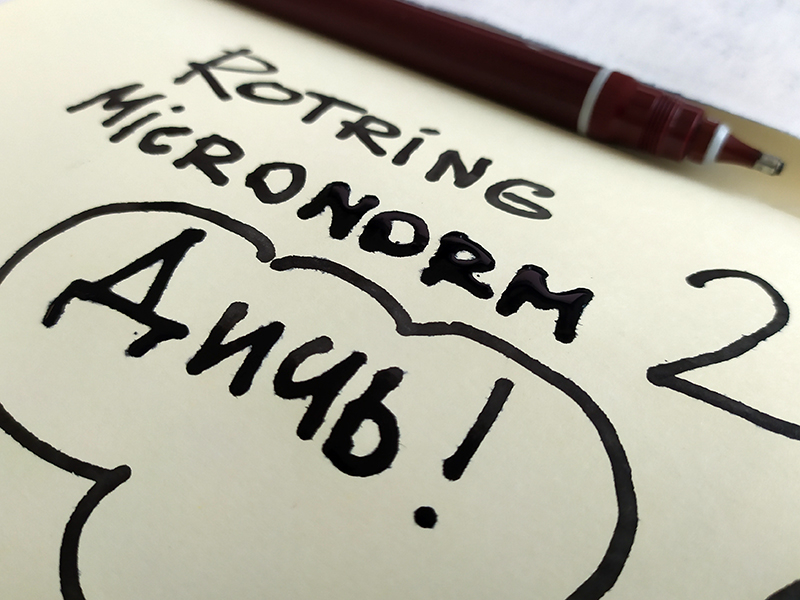 ROTRiNG
MiCRONORM 2
Дичь!